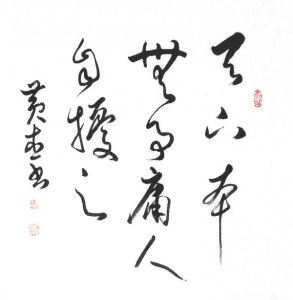 天下本
無事庸人
自擾之
黄